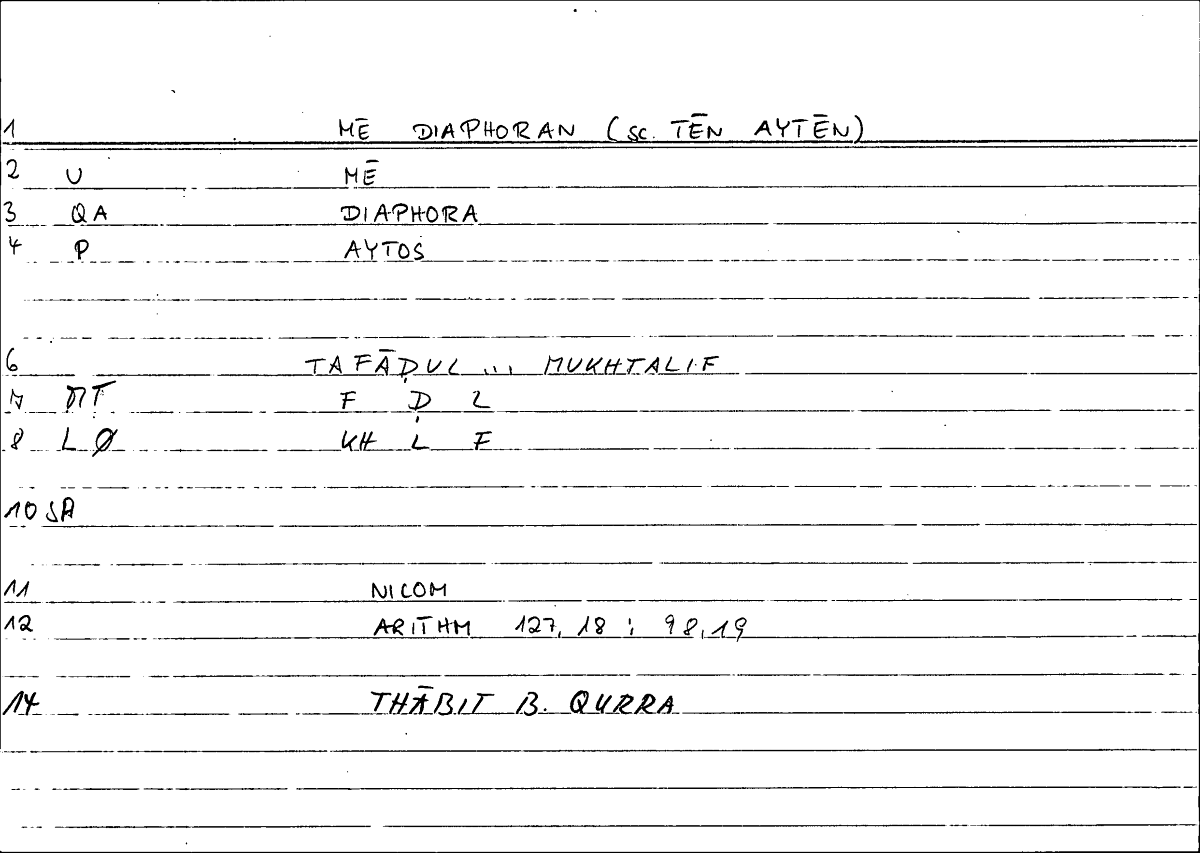 1 MĒ DIAPHORAN (SC. TĒN AYTĒN)
2 U MĒ
3 QA DIAPHORA
4 P AYTOS
6 TAFĀḌUL ... MUKHTALIF
7 MT F Ḍ L
8 LØ KH L F
10 SA
11 NICOM
12 ARITHM 127,18 ; 98,19
14 THĀBIT B. QURRA